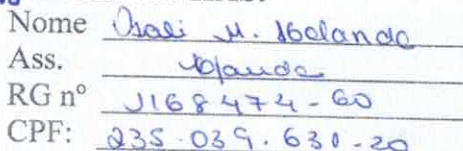 Nome Osali M. Holanda
Ass. Holanda
RG nº 1168474-60
CPF: 235.039.630-20